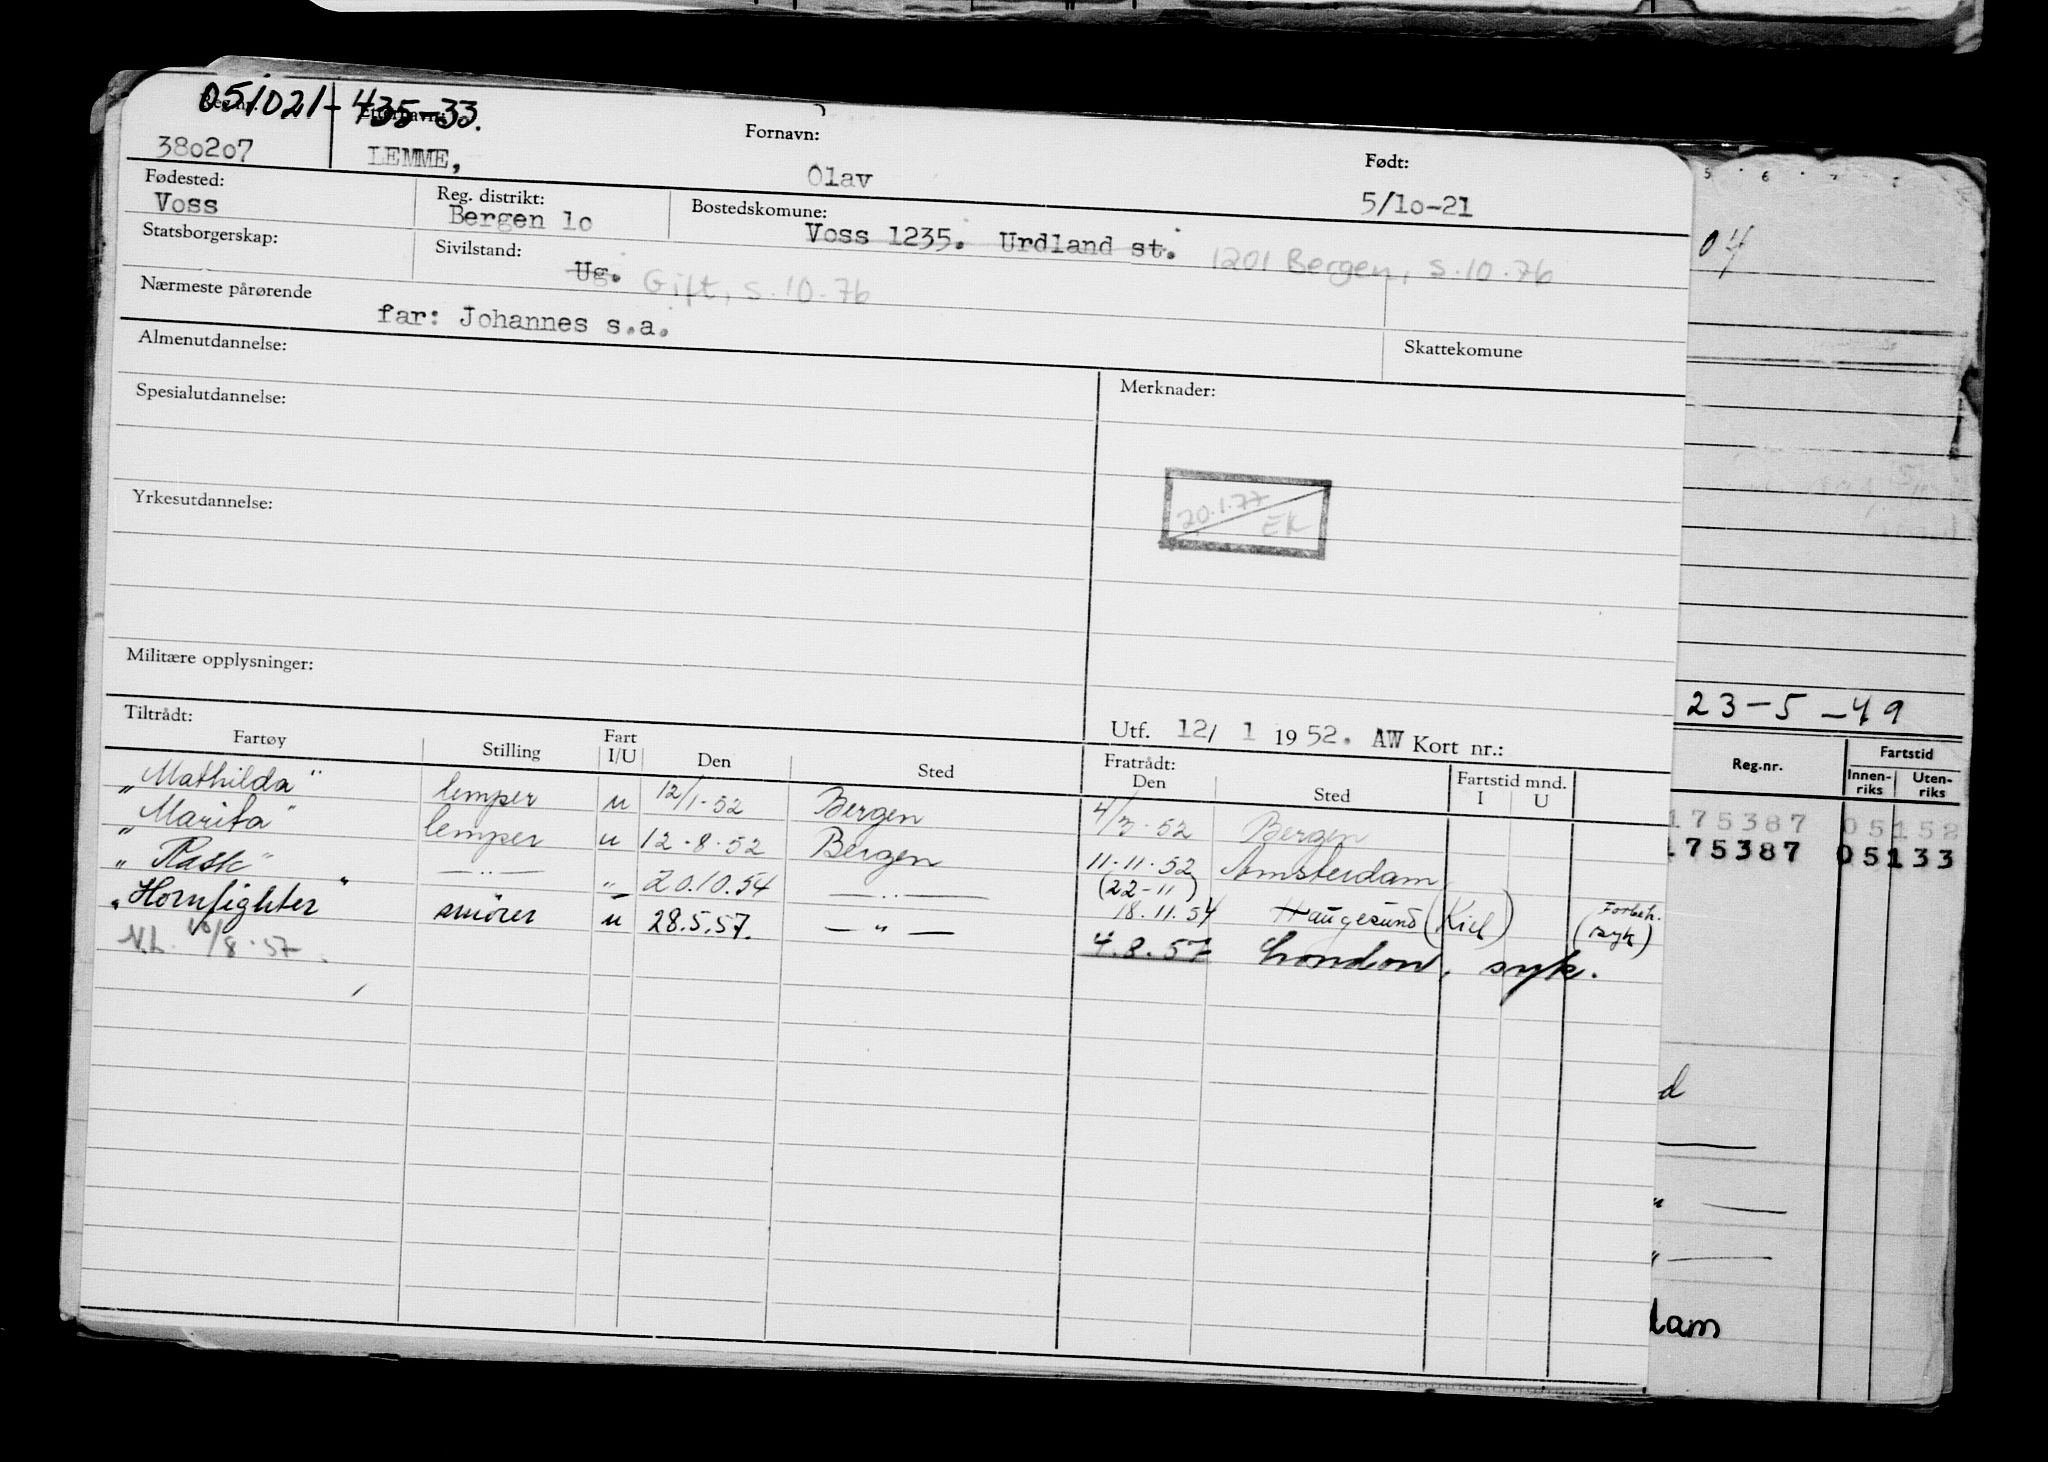 051021-435-33.
Reg.nr. Etternavn: Fornavn: Født:
380207 LEMME, Olav 5/10-21
Fødested: Reg. distrikt: Bostedskomune:
Voss Bergen 10 Voss 1235. Urdland st. 1201 Bergen, s.10.76
Statsborgerskap: Sivilstand: Ug. Gift, s.10.76
Nærmeste pårørende
far: Johannes s.a.
Skattekomune
Almenutdannelse:
Merknader:
Spesialutdannelse:
20.1.77 EK
Yrkesutdannelse:
Militære opplysninger:
Utf. 12/ 1 1952. AW Kort nr.:
Tiltrådt: Fratrådt:
Fartøy Stilling Fart I/U Den Sted Den Sted Fartstid mnd. I U
"Mathilda" lemper u 12/1-52 Bergen 4/3-52 Bergen
"Marita" lemper u 12-8-52 Bergen 11-11-52 Amsterdam
"Rask" —"— " 20.10.54 —"— (22-11) 18.11.54 Haugesund (Kiel) (Forbeh. syk)
"Hornfighter" smører u 28.5.57. —"— 4.8.57 London, syk.
/8-57
04
23-5-49
Reg.nr. Fartstid
Innen-riks Uten-riks
175387 05152
175387 05133
d
dam